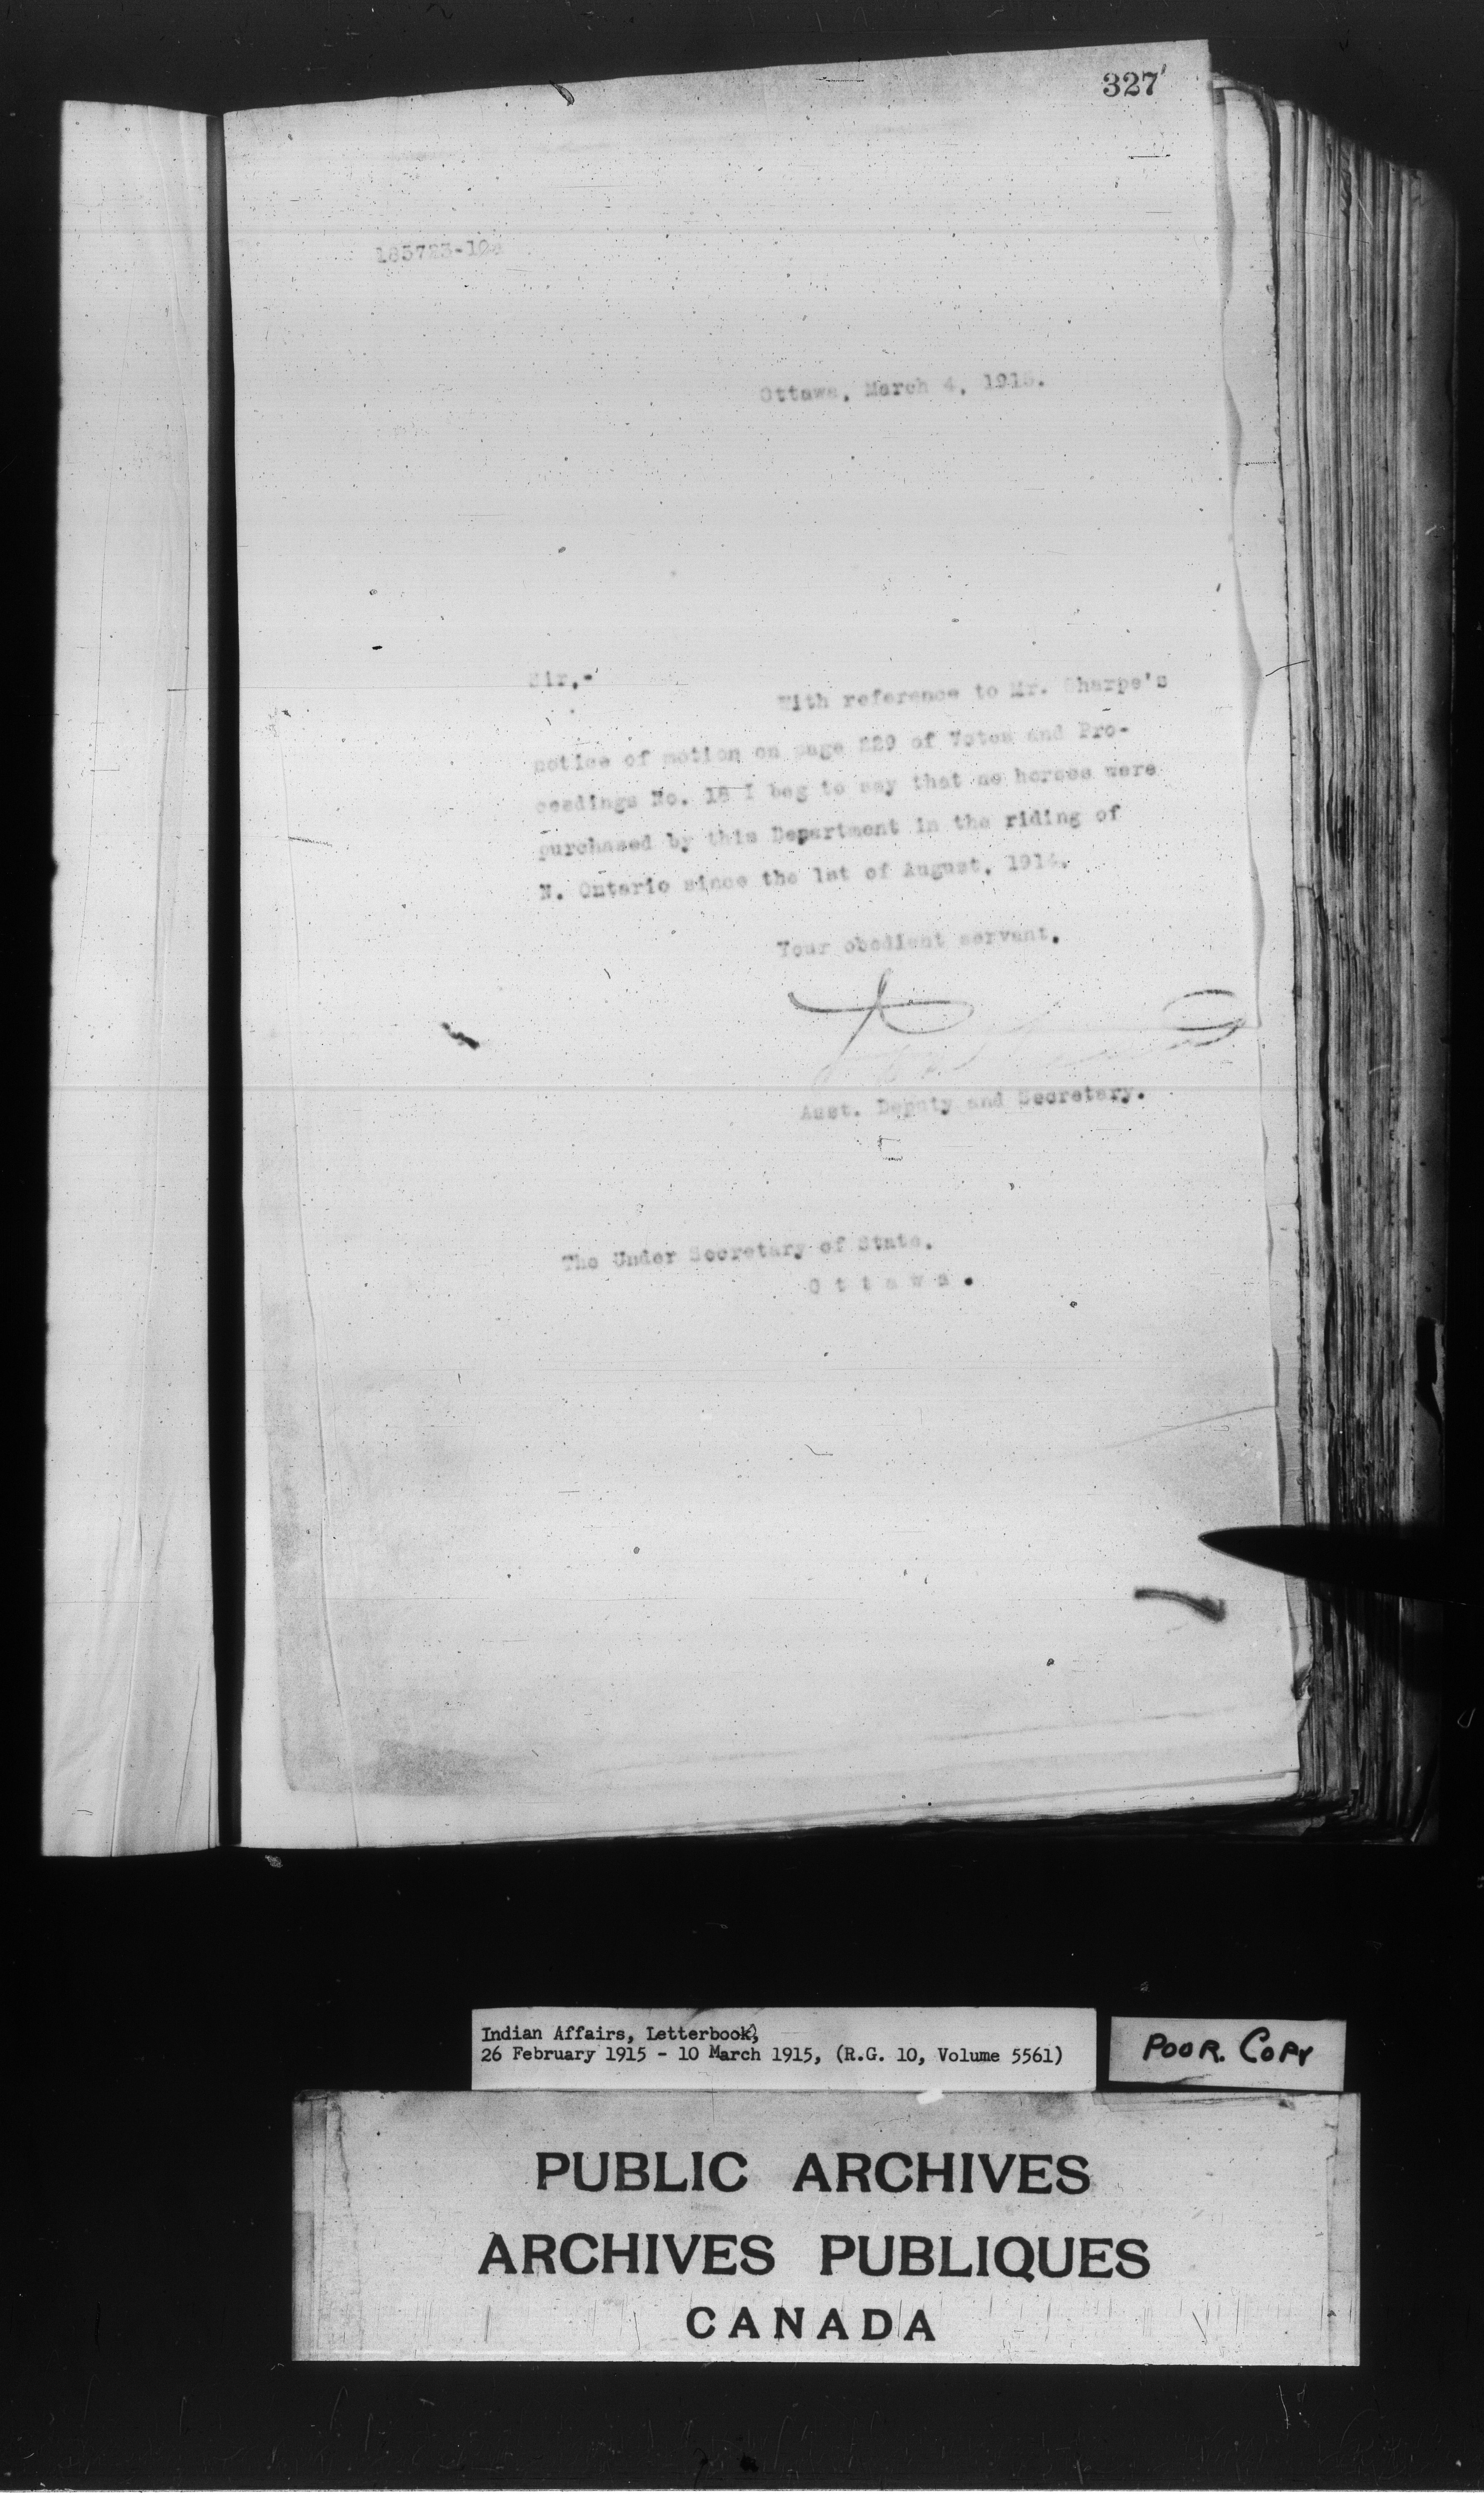 327
Ottawa, March 4, 1915.
Sir,-
With reference to Mr. Sharpe's
notice of motion on page 229 of Votes and Pro-
ceedings No. 18 I beg to say that no horses were
purchased by this Department in the riding of
N. Ontario since the 1st of August, 1914.
Your obedient servant,
Asst. Deputy and Secretary.
The Under Secretary of State,
Ottawa.
Indian Affairs, Letterbook,
26 February 1915 - 10 March 1915, (R.G. 10, Volume 5561)
POOR. COPY
PUBLIC ARCHIVES
ARCHIVES PUBLIQUES
CANADA